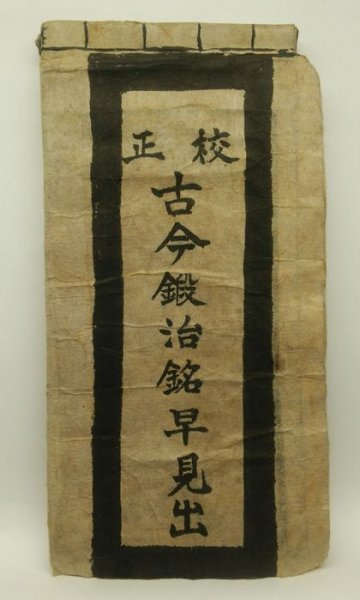 校正
古今鍛治銘早見出